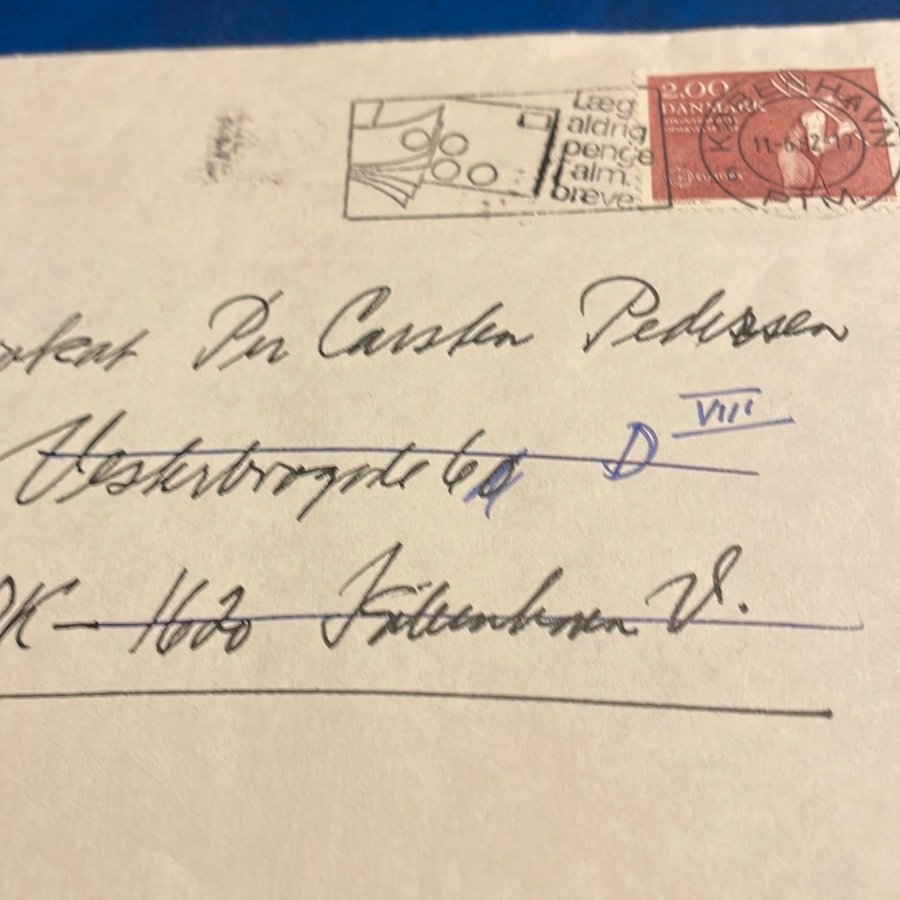 Læg
aldrig
penge
i alm.
breve
2.00
DANMARK
EUROPA
KØBENHAVN
11-6.82-17
PTM
Per Carsten Pedersen
Vesterbrogade 6 D VIII
DK - 1620 København V.